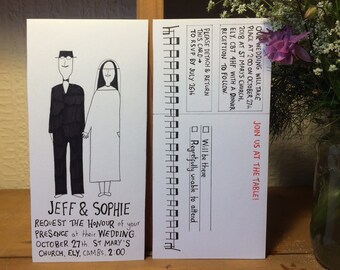 JEFF & SOPHIE
REQUEST THE HONOUR of your
PRESENCE at their WEDDING
OCTOBER 27th ST MARY'S
CHURCH, ELY, CAMBS. 2.00
OUR WEDDING WILL TAKE
PLACE AT 2.00 ON OCTOBER 27th
2018 AT ST MARY'S CHURCH,
ELY, CB7 4HF WITH A DINNER
RECEPTION TO FOLLOW
PLEASE DETACH & RETURN
THIS CARD
TO RSVP BY JULY
JOIN US AT THE TABLE!
Will be there
Regretfully unable to attend